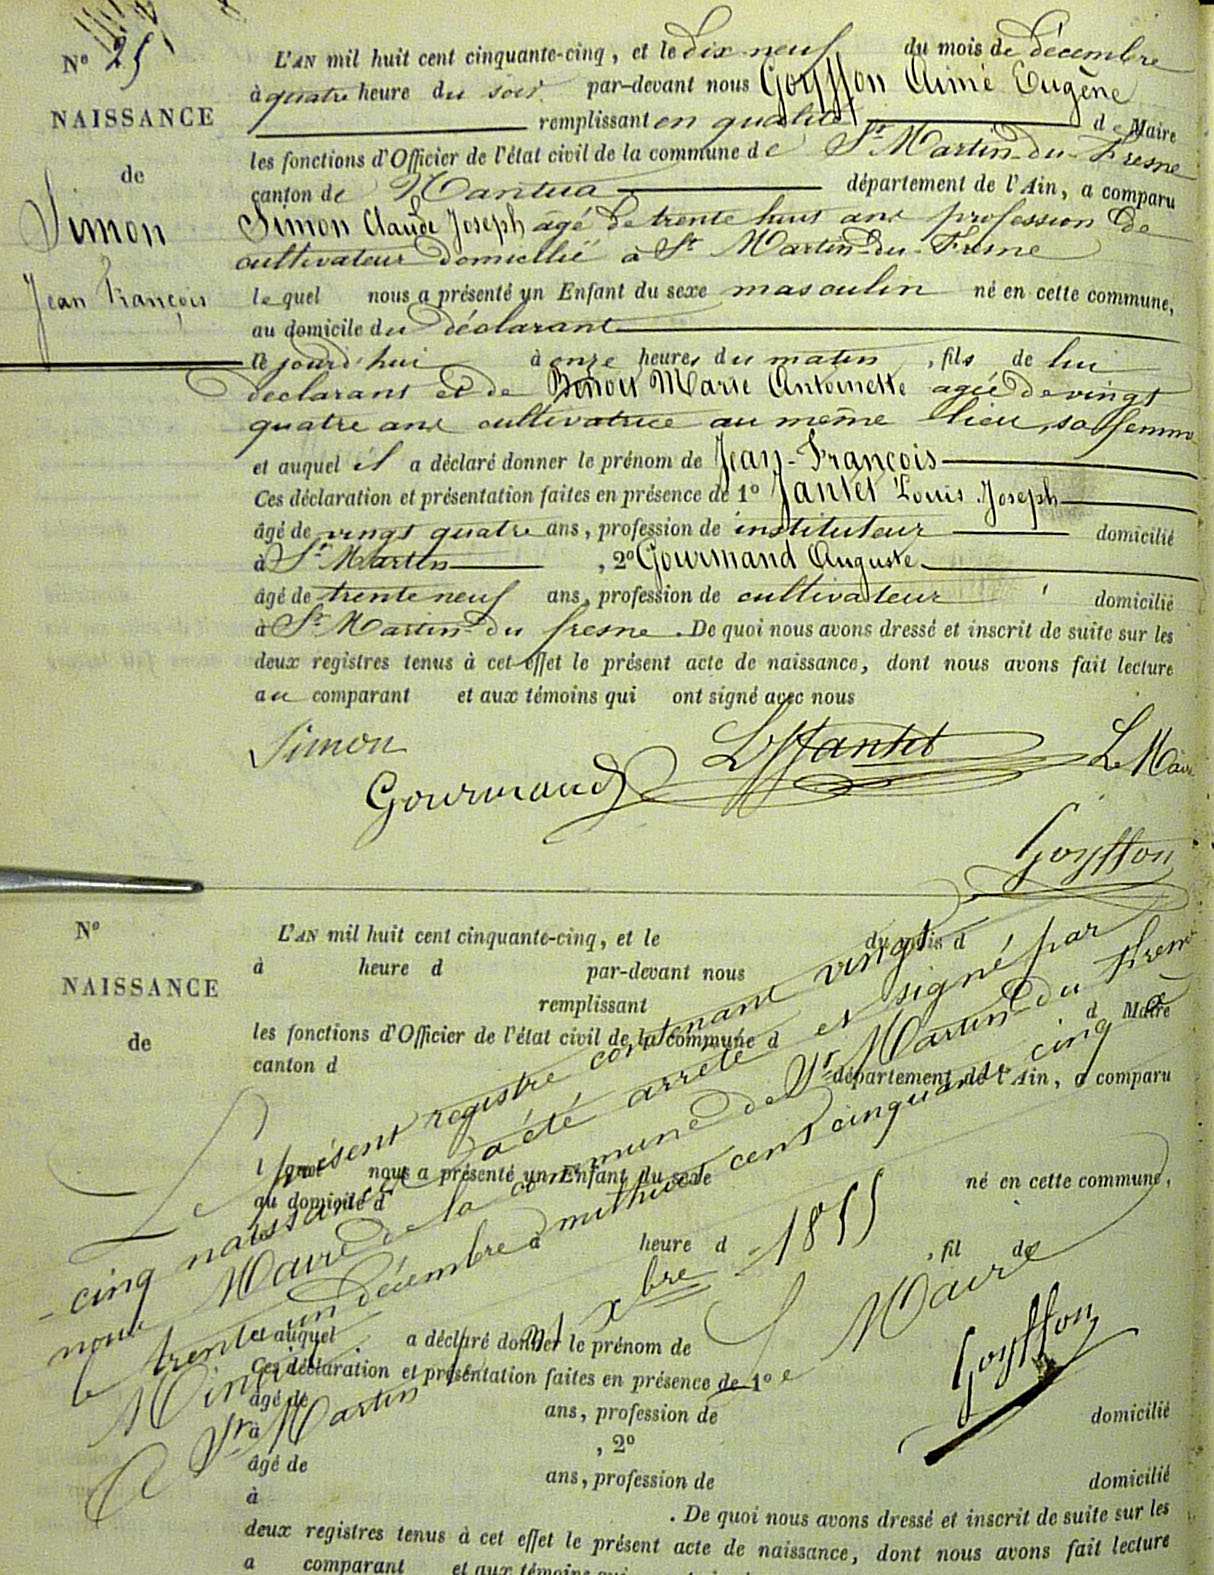 N° 25
NAISSANCE
de
Simon
Jean François
L'AN mil huit cent cinquante-cinq, et le dix neuf du mois de décembre
à quatre heure du soir par-devant nous Goyffon Aimé Eugène
remplissant en qualité de Maire
les fonctions d'Officier de l'état civil de la commune de St Martin-du-Fresne
canton de Nantua département de l'Ain, a comparu
Simon Claude Joseph âgé de trente huit ans profession de
cultivateur domicilié à St Martin-du-Fresne
lequel nous a présenté un Enfant du sexe masculin né en cette commune,
au domicile du déclarant
ce jourd'hui à onze heures du matin, fils de lui
déclarant et de Benoit Marie Antoinette agée de vingt
quatre ans cultivatrice au même lieu, sa femme
et auquel il a déclaré donner le prénom de Jean-François
Ces déclaration et présentation faites en présence de 1° Jantet Louis Joseph
âgé de vingt quatre ans, profession de instituteur domicilié
à St Martin, 2° Gourmand Auguste
âgé de trente neuf ans, profession de cultivateur domicilié
à St Martin-du fresne. De quoi nous avons dressé et inscrit de suite sur les
deux registres tenus à cet effet le présent acte de naissance, dont nous avons fait lecture
au comparant et aux témoins qui ont signé avec nous
Simon
Gourmand
LJJantet
Le Maire
Goyffon
N°
NAISSANCE
de
L'AN mil huit cent cinquante-cinq, et le du mois d
à heure d par-devant nous
remplissant d Maire
les fonctions d'Officier de l'état civil de la commune d
canton d département de l'Ain, a comparu
l quel nous a présenté un Enfant du sexe né en cette commune,
au domicile d
à heure d, fil de
et auquel a déclaré donner le prénom de
Ces déclaration et présentation faites en présence de 1°
âgé de ans, profession de domicilié
à, 2°
âgé de ans, profession de domicilié
à. De quoi nous avons dressé et inscrit de suite sur les
deux registres tenus à cet effet le présent acte de naissance, dont nous avons fait lecture
a comparant et aux témoins qui
Le présent registre contenant vingt
cinq naissances a été arrêté et signé par
nous Maire de la commune de St Martin du Fresne
le trente un décembre mil huit cent cinquante cinq
A St Martin 31 xbre 1855
Le Maire
Goyffon